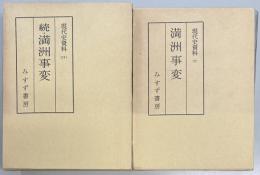 現代史資料
続・満洲事変
みすず書房
現代史資料
満洲事変
みすず書房